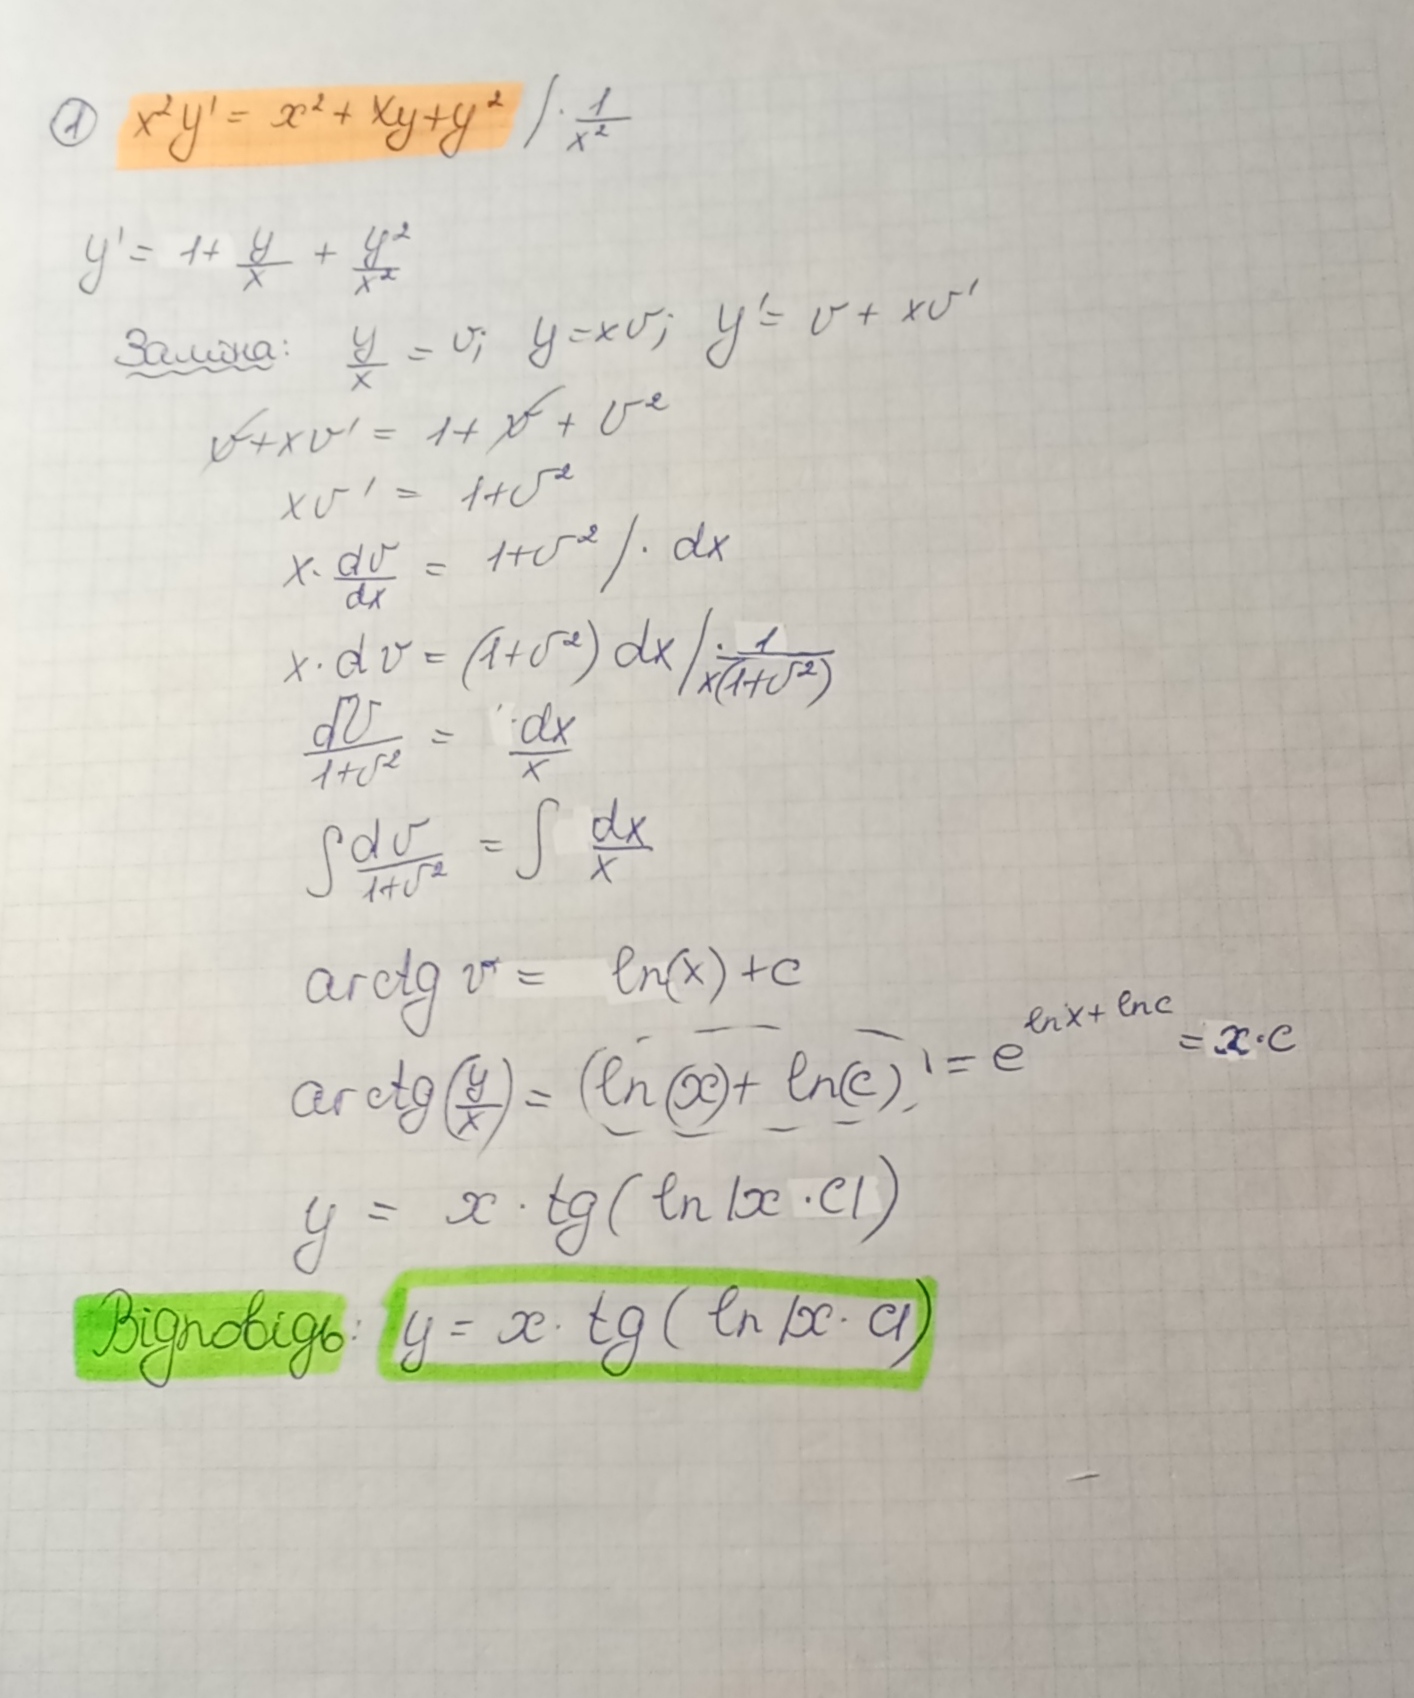 ① x²y' = x² + xy + y² / · 1/x²
y' = 1 + y/x + y²/x²
Заміна: y/x = v; y = xv; y' = v + xv'
v + xv' = 1 + v + v²
xv' = 1 + v²
x · dv/dx = 1 + v² / · dx
x · dv = (1 + v²) dx / · 1/x(1+v²)
dv/1+v² = dx/x
∫ dv/1+v² = ∫ dx/x
arctg v = ln(x) + c
arctg(y/x) = (ln(x) + ln(c))' = e^(lnx + lnc) = x · c
y = x · tg(ln|x · c|)
Відповідь: y = x · tg(ln|x · c|)